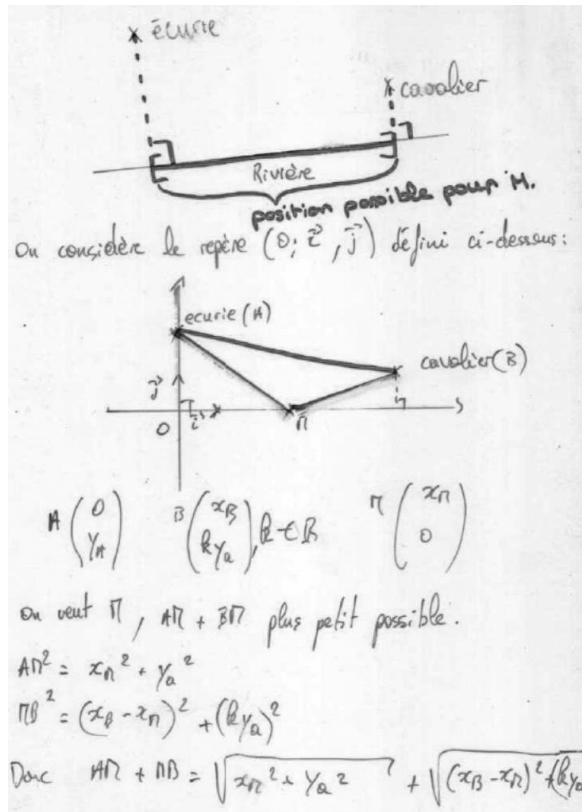 écurie
cavalier
Rivière
position possible pour M.
On considère le repère (O; i⃗, j⃗) défini ci-dessous:
ecurie (A)
cavalier (B)
j⃗
O
i⃗
M
A (0 yA) B (xB kya), k ∈ ℝ M (xM 0)
on veut M, AM + BM plus petit possible.
AM² = xM² + ya²
MB² = (xB - xM)² + (kya)²
Donc AM + MB = √(xM² + ya²) + √((xB - xM)² + (kya